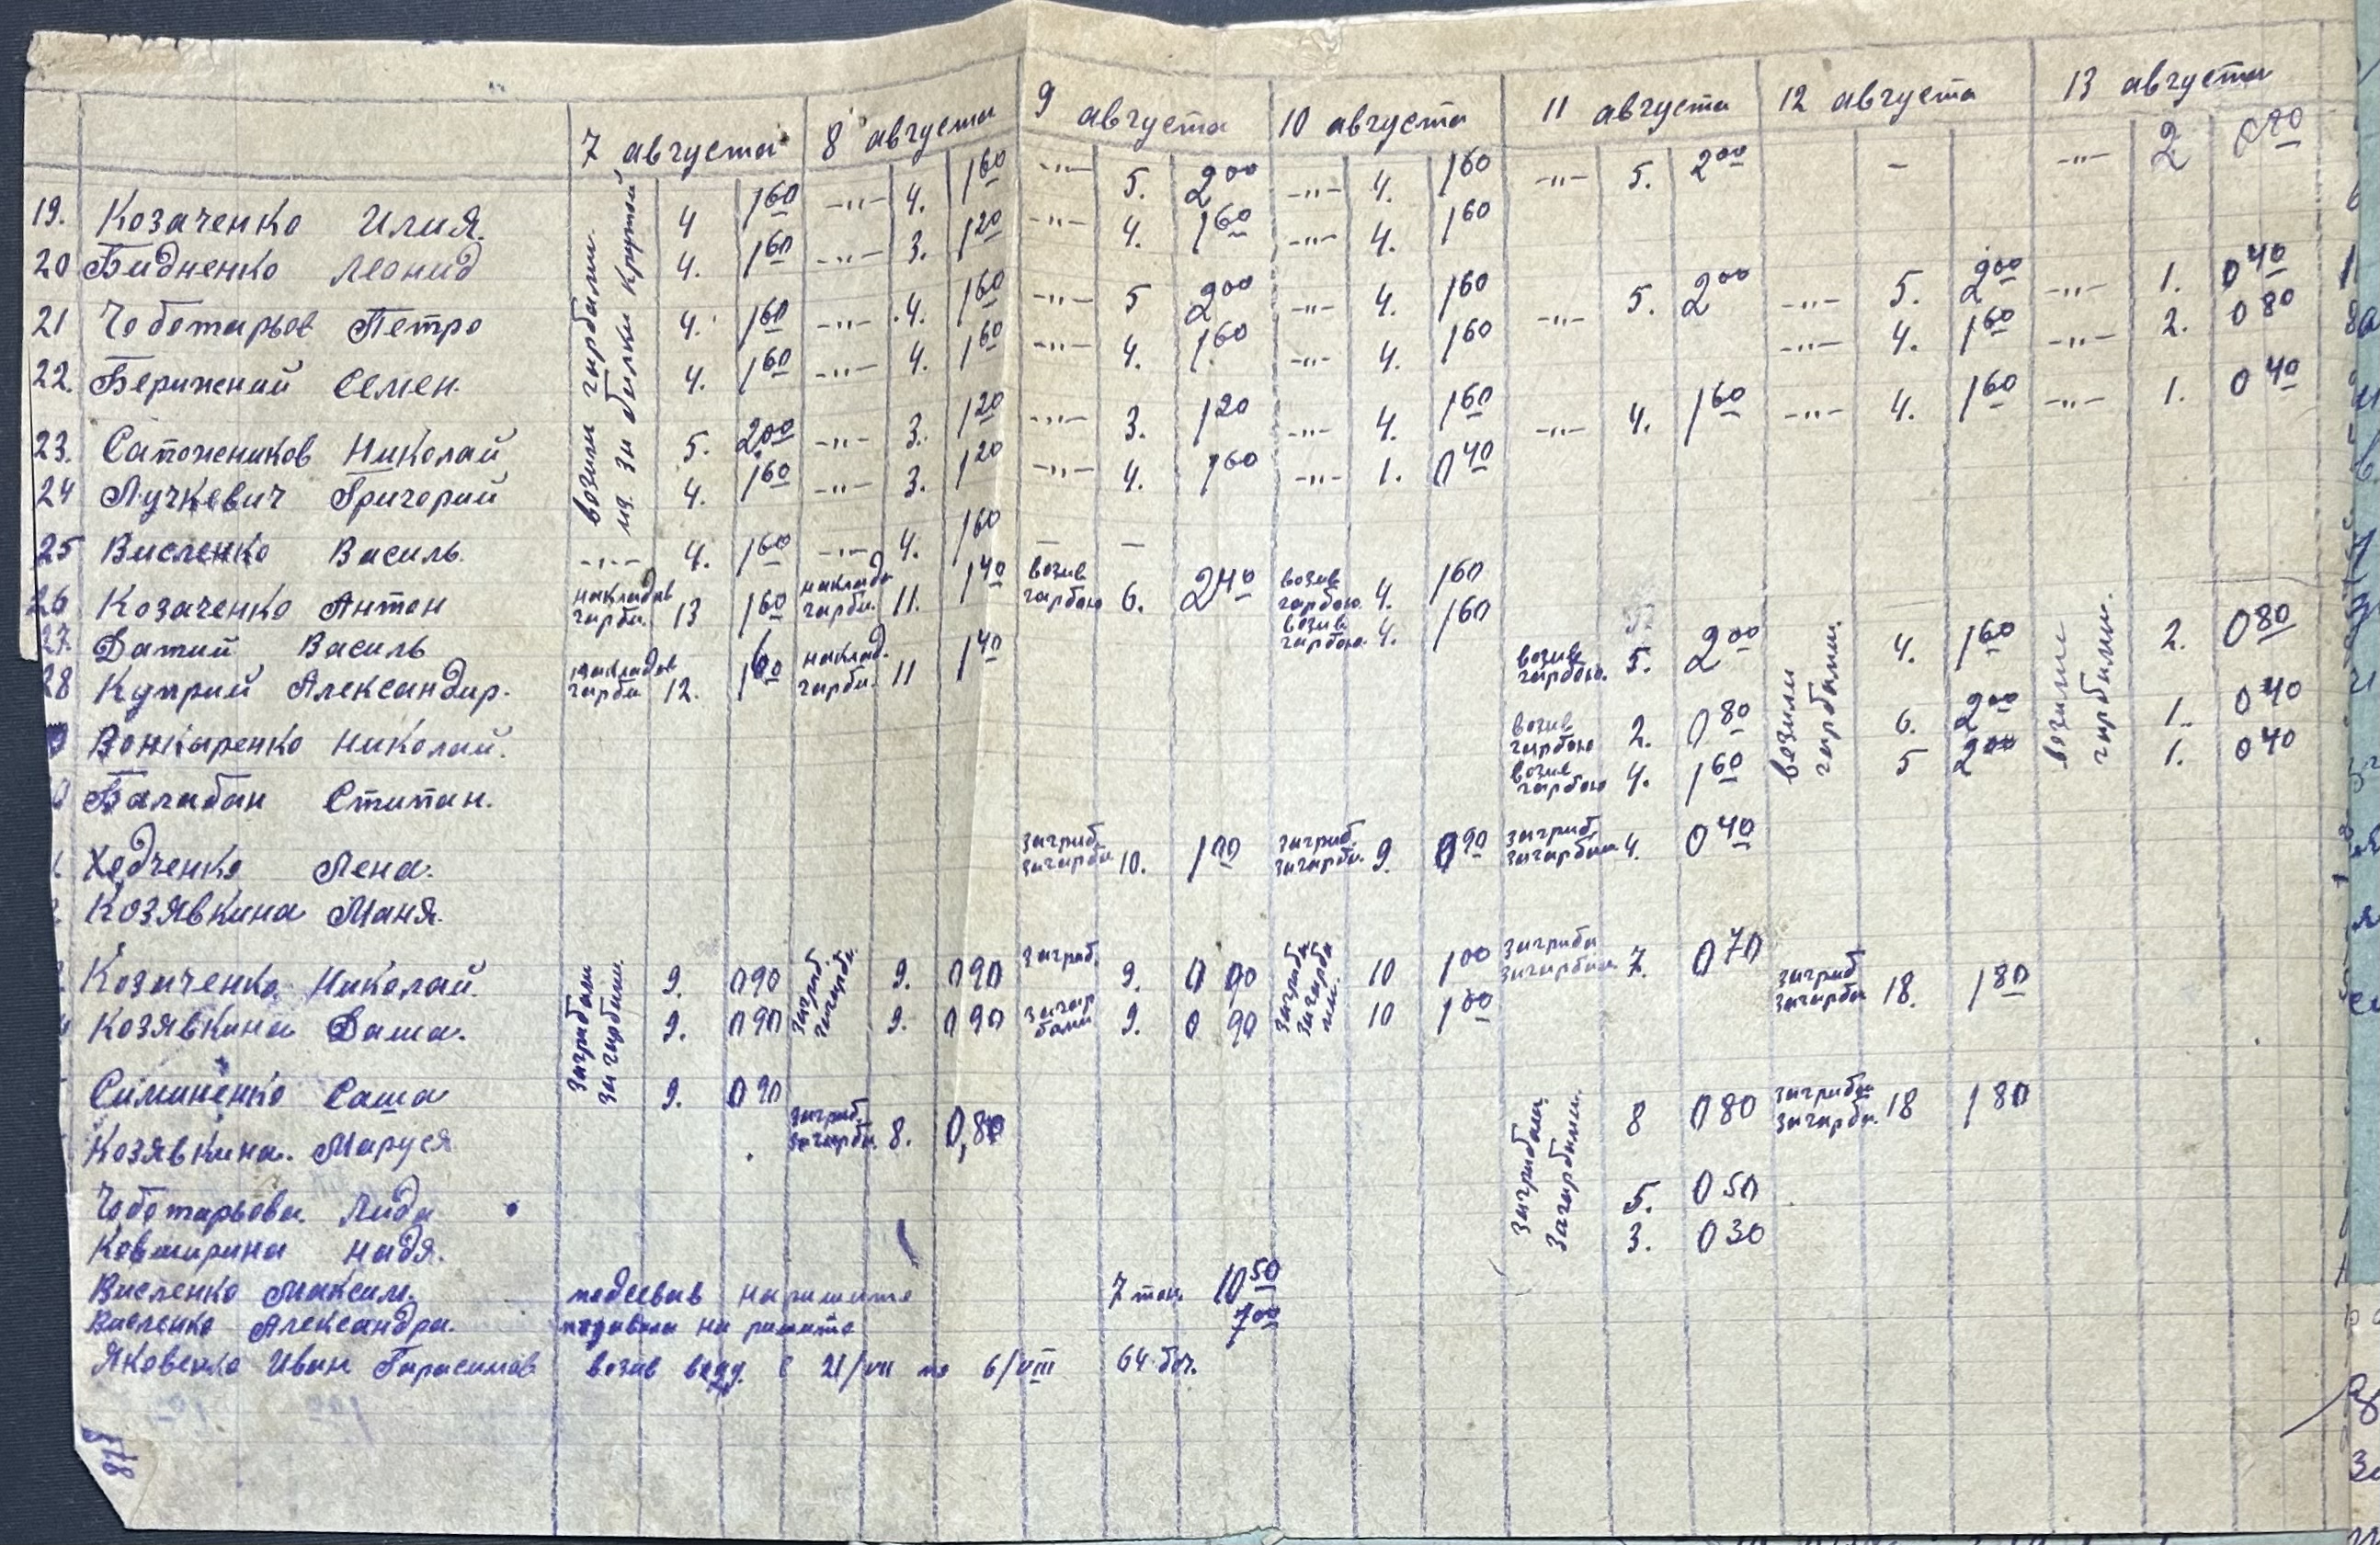 7 августа 8 августа 9 августа 10 августа 11 августа 12 августа 13 августа
19. Козаченко Илия. 4 1 60 -"- 4. 1 60 -"- 5. 2 00 -"- 4. 1 60 -"- 5. 2 00 - -"- 2 0 80
20 Бидненко Леонид 4. 1 60 -"- 3. 1 20 -"- 4. 1 60 -"- 4. 1 60
21 Чоботарьов Петро 4. 1 60 -"- 4. 1 60 -"- 5 2 00 -"- 4. 1 60 -"- 5. 2 00 -"- 5. 2 00 -"- 1. 0 40
22. Берижний Семен. 4. 1 60 -"- 4. 1 60 -"- 4. 1 60 -"- 4. 1 60 -"- 4. 1 60 -"- 2. 0 80
23. Сапожников Николай 5. 2 00 -"- 3. 1 20 -"- 3. 1 20 -"- 4. 1 60 -"- 4. 1 60 -"- 4. 1 60 -"- 1. 0 40
24 Лучкевич Григорий 4. 1 60 -"- 3. 1 20 -"- 4. 1 60 -"- 1. 0 40
возили гарбами
из за билки крутой
25 Висленко Василь -"- 4. 1 60 -"- 4. 1 60 - -
26 Козаченко Антон накладав гарби 13 1 60 наклада гарби. 11. 1 40 возив гарбою 6. 2 40 возив гарбою 4. 1 60
27. Датий Василь возив гарбою. 4. 1 60
28 Куприй Александир. накладав гарби 12. 1 60 наклад. гарби. 11 1 40 возив гарбою. 5. 2 00 4. 1 60 2. 0 80
Вонкаренко Николай. возив гарбою 2. 0 80 6. 2 00 1. 0 40
Балабан Стипан. возив гарбою 4. 1 60 5 2 00 1. 0 40
возили гарбами.
возили гарбами.
Ходченко Лена. загриб. загарба 10. 1 00 загриб. загарба. 9. 0 90 загриб. загарбами 4. 0 40
Козявкина Маня.
Козаченко Николай. 9. 0 90 9. 0 90 загриб. 9. 0 90 10 1 00 загриба загарбами 7. 0 70 загриб загарба 18. 1 80
Козявкина Даша. 9. 0 90 9. 0 90 загар бами 9. 0 90 10 1 00
загрибали загарбами.
загриб. загарба.
загриба загарба ми.
Симиненко Саша 9. 0 90 8 0 80 загриба загарба. 18 1 80
Козявкина. Маруся загриб. загарба. 8. 0,80
Чоботарьова. Лида 5. 0 50
Ковширина Надя. 3. 0 30
загрибали загарбами.
Висленко Максим. подсевав на решите 7 тон. 10 50
Висленко Александра. подавала на решите 7 00
Яковенко Иван Гарасимов возив воду. с 21/VII по 6/VIII 64 боч.